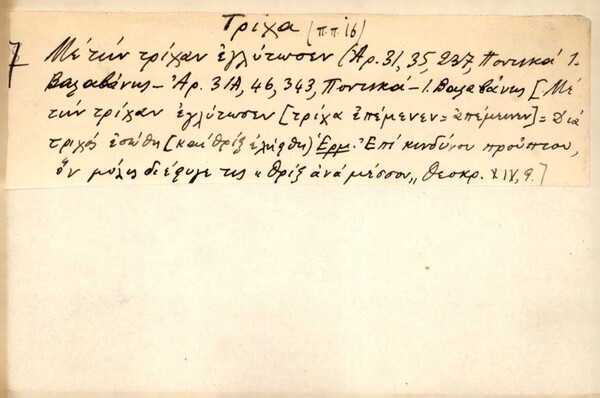 Τρίχα (π.π. 16)
7 Μέ τήν τρίχαν ἐγλύτωσεν (Ἀρ. 31, 35, 237, Ποντικά Ι.
Βαλαβάνης - Ἀρ. 31Α, 46, 343, Ποντικά - Ι. Βαλαβάνης [Μέ
τήν τρίχαν ἐγλύτωσεν [τρίχα ἐπέμενεν = ἀπέμεινεν] = Διά
τριχός ἐσώθη [καί θρίξ ἐλείφθη) Ἑρμ. Ἐπί κινδύνου προὔπτου,
ὅν μόλις διέφυγε τις "θρίξ ἀνά μέσσον" Θεοκρ. XIV, 9.]